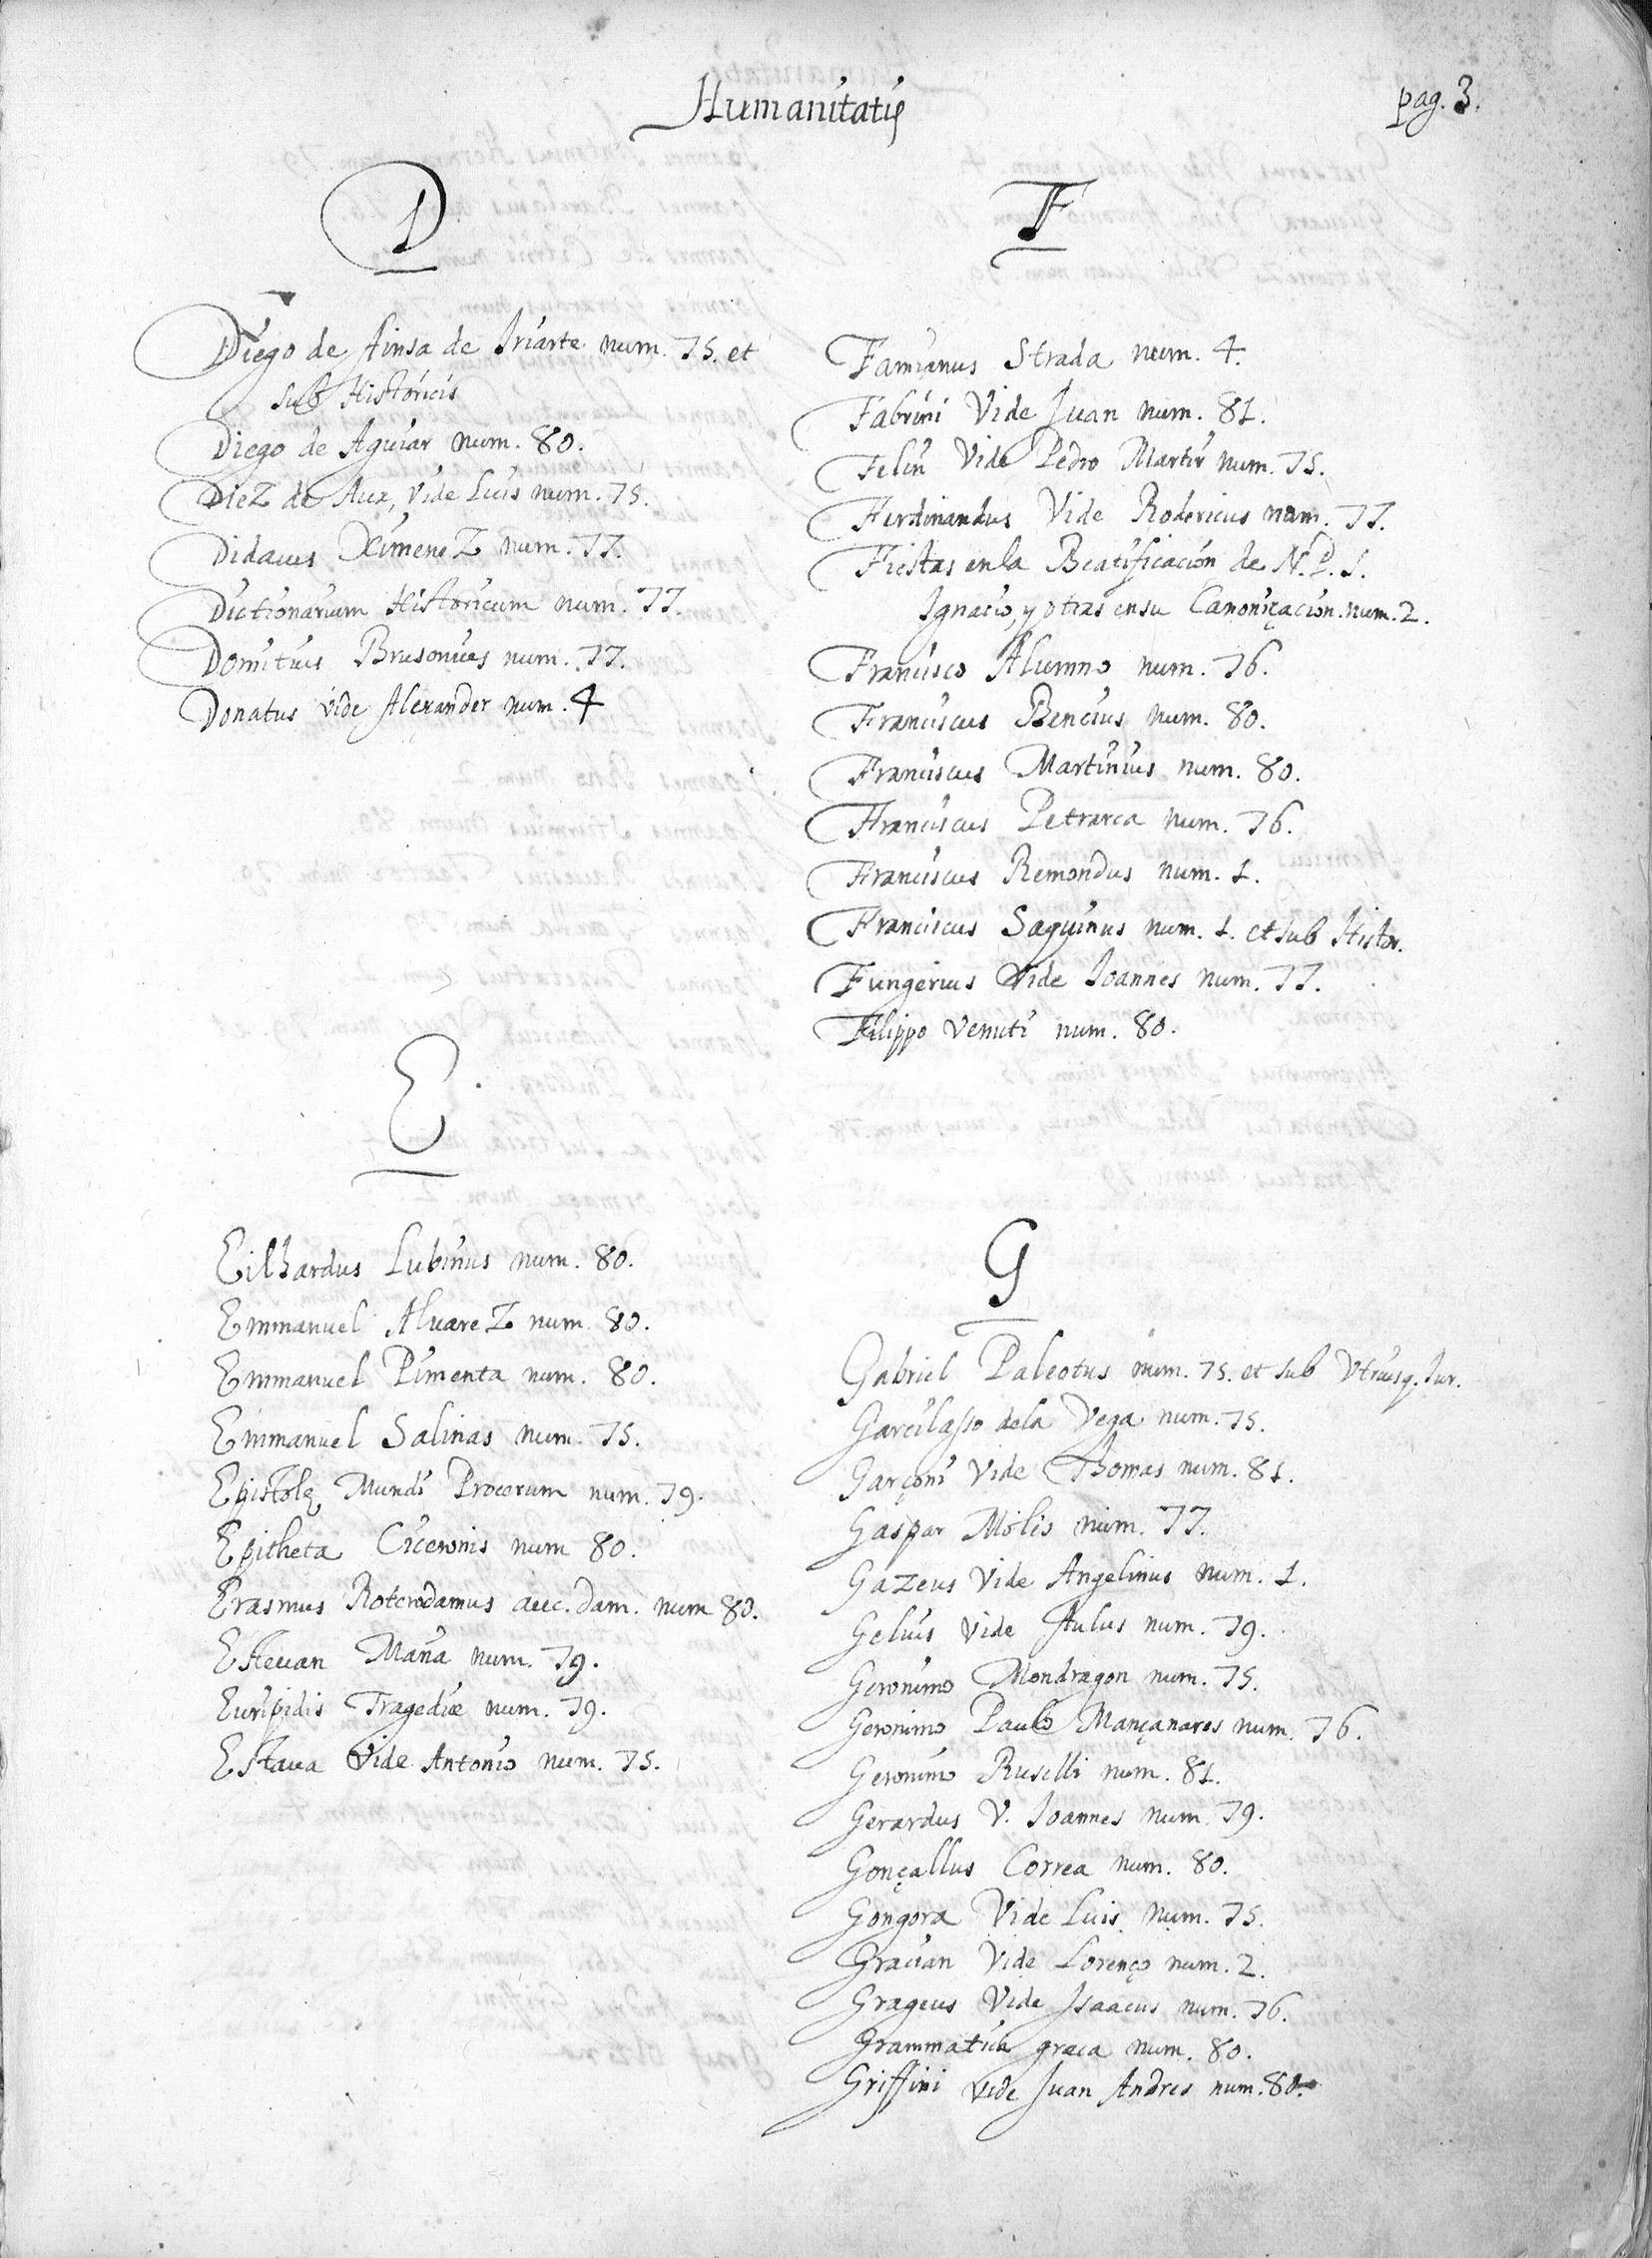 Humanitatis
pag. 3.
D
Diego de Ainsa de Iriarte num. 75. et
sub Historicis
Diego de Aguiar num. 80.
Diez de Aux, Vide Luis num. 75.
Didacus Ximenez num. 77.
Dictionarium Historicum num. 77.
Domitius Brusonius num. 77.
Donatus vide Alexander num. 4
E.
Eilhardus Lubinus num. 80.
Emmanuel Aluarez num. 80.
Emmanuel Pimenta num. 80.
Emmanuel Salinas num. 75.
Epistolę Mundi Procerum num. 79.
Epitheta Ciceronis num 80.
Erasmus Roterodamus auc. dam. num 80.
Esteuan Maña num. 79.
Euripidis Tragediæ num. 79.
Estaua Vide Antonio num. 75.
F
Famianus Strada num. 4.
Fabrini Vide Juan num. 81.
Feliu Vide Pedro Martir num. 75.
Ferdinandus Vide Rodericus num. 77.
Fiestas en la Beatificación de N. P. S.
Ignacio, y otras en su Canoniçacion. num. 2.
Francisco Alumno num. 76.
Franciscus Bencius num. 80.
Franciscus Martinius num. 80.
Franciscus Petrarca num. 76.
Franciscus Remondus num. 1.
Franciscus Saguinus num. 1. et sub Histor.
Fungerius Vide Ioannes num. 77.
Filippo Venuti num. 80.
G
Gabriel Paleotus num. 75. et sub Vtriusq. Iur.
Garcilasso dela Vega num. 75.
Garçoni Vide Thomas num. 81.
Gaspar Mölis num. 77.
Gazeus Vide Angelinus num. 1.
Gelius Vide Aulus num. 79.
Geronimo Mondragon num. 75.
Geronimo Paulo Mançanares num. 76.
Geronimo Ruselli num. 81.
Gerardus V. Ioannes num. 79.
Gonçallus Correa num. 80.
Gongora Vide Luis num. 75.
Gracian Vide Lorenço num. 2.
Grageus Vide Isaacus num. 76.
Grammatica græca num. 80.
Griffini vide Juan Andres num. 80.